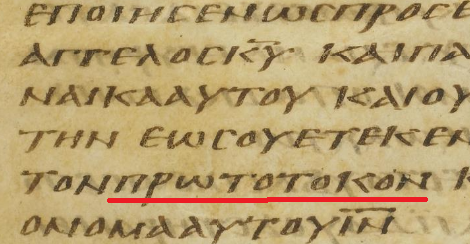 ΕΠΟΙΗϹΕΝΩϹΠΡΟϹΕ
ΑΓΓΕΛΟϹΚ̅Υ̅ ΚΑΙΠΑ
ΝΑΙΚΑΑΥΤΟΥ ΚΑΙΟΥ
ΤΗΝ ΕΩϹΟΥΕΤΕΚΕΝ
ΤΟΝΠΡΩΤΟΤΟΚΟΝ Κ
ΟΝΟΜΑΑΥΤΟΥΙ̅Ν̅